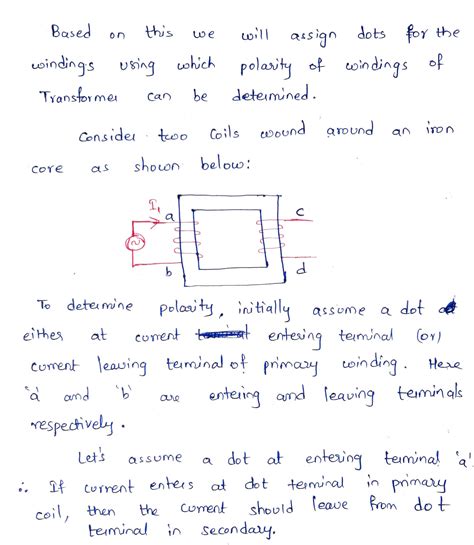 Based on this we will assign dots for the
windings using which polarity of windings of
Transformer can be determined.
Consider two coils wound around an iron
core as shown below:
I₁
a
c
b
d
To determine polarity, initially assume a dot
either at current entering terminal (or)
current leaving terminal of primary winding. Here
'a' and 'b' are entering and leaving terminals
respectively.
Let's assume a dot at entering terminal 'a'.
∴ If current enters at dot terminal in primary
coil, then the current should leave from dot
terminal in secondary.